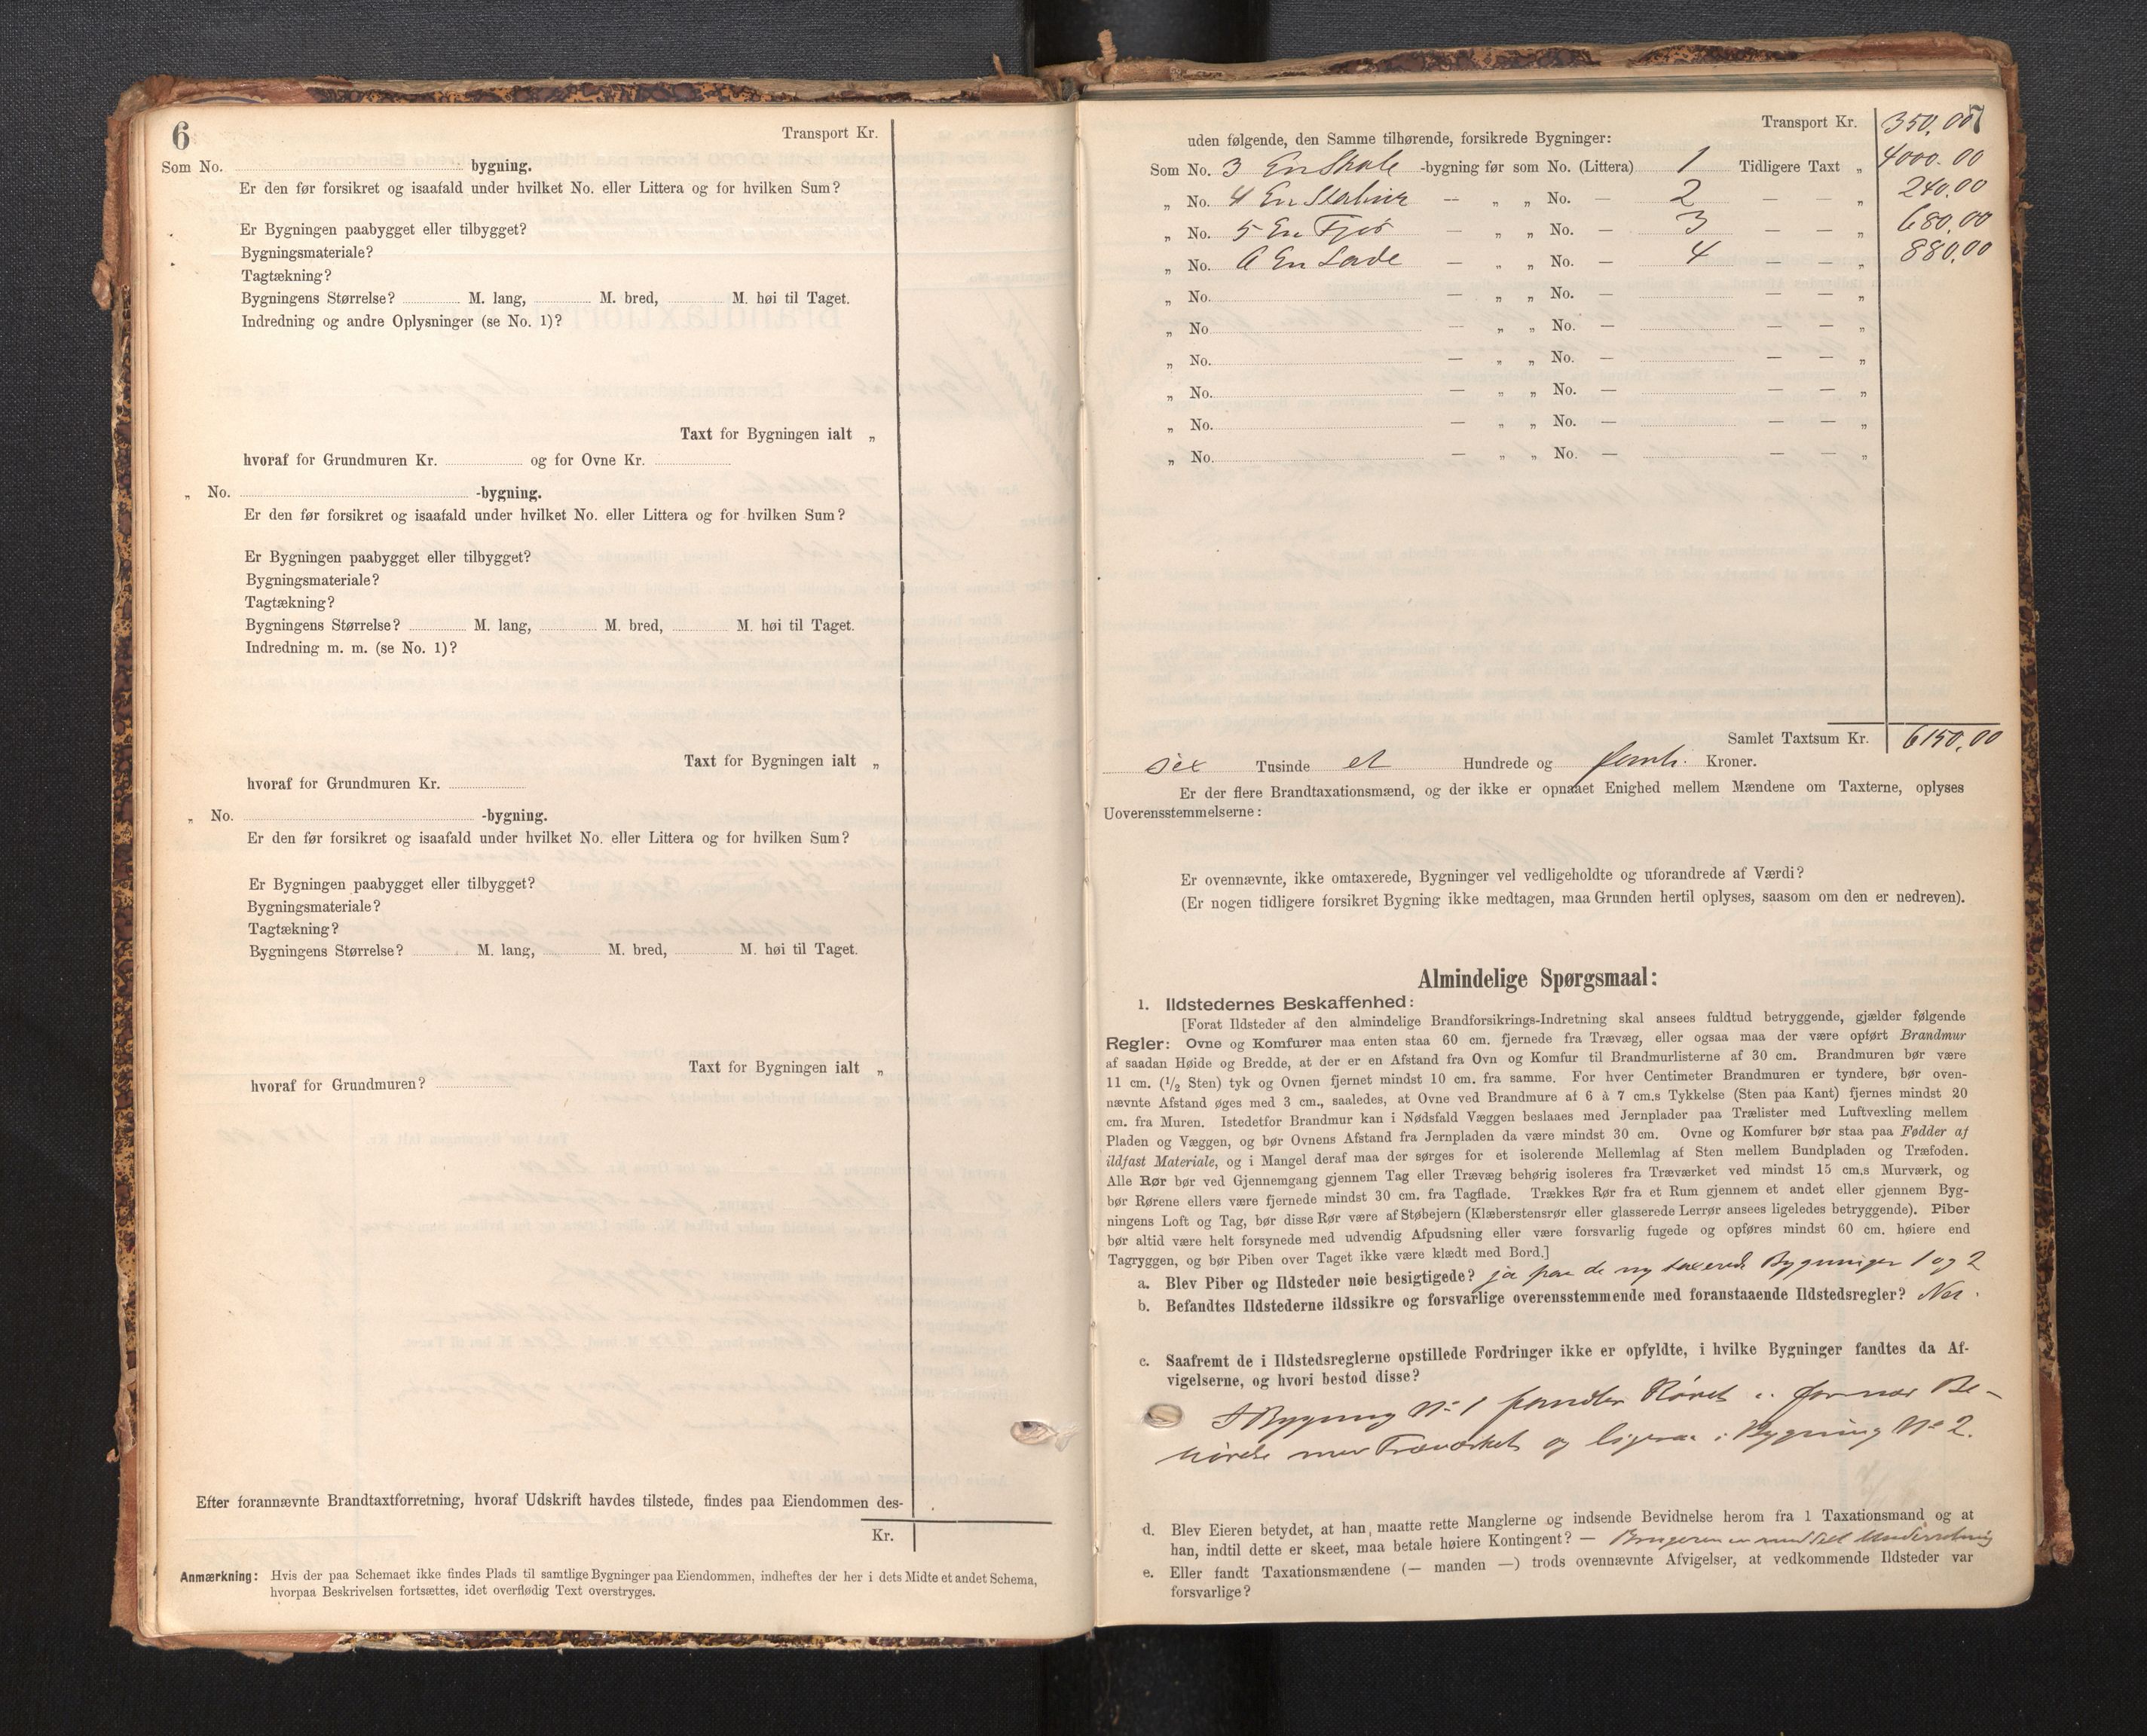 6
Transport Kr.
Som No. bygning.
Er den før forsikret og isaafald under hvilket No. eller Littera og for hvilken Sum?
Er Bygningen paabygget eller tilbygget?
Bygningsmateriale?
Tagtækning?
Bygningens Størrelse? M. lang, M. bred, M. høi til Taget.
Indredning og andre Oplysninger (se No. 1)?
Taxt for Bygningen ialt „
hvoraf for Grundmuren Kr. og for Ovne Kr.
„ No. -bygning.
Er den før forsikret og isaafald under hvilket No. eller Littera og for hvilken Sum?
Er Bygningen paabygget eller tilbygget?
Bygningsmateriale?
Tagtækning?
Bygningens Størrelse? M. lang, M. bred, M. høi til Taget.
Indredning m. m. (se No. 1)?
Taxt for Bygningen ialt „
hvoraf for Grundmuren Kr.
„ No. -bygning.
Er den før forsikret og isaafald under hvilket No. eller Littera og for hvilken Sum?
Er Bygningen paabygget eller tilbygget?
Bygningsmateriale?
Tagtækning?
Bygningens Størrelse? M. lang, M. bred, M. høi til Taget.
Taxt for Bygningen ialt „
hvoraf for Grundmuren?
Efter forannævnte Brandtaxtforretning, hvoraf Udskrift havdes tilstede, findes paa Eiendommen des-
Kr.
Anmærkning: Hvis der paa Schemaet ikke findes Plads til samtlige Bygninger paa Eiendommen, indheftes der her i dets Midte et andet Schema,
hvorpaa Beskrivelsen fortsættes, idet overflødig Text overstryges.
7
Transport Kr. 350,00
uden følgende, den Samme tilhørende, forsikrede Bygninger:
Som No. 3 En -bygning før som No. (Littera) 1 Tidligere Taxt „ 4000.00
„ No. 4 En — „ „ No. — 2 — — „ 240,00
„ No. 5 En Fjøs — „ „ No. — 3 — — „ 680,00
„ No. 6 En Lade — „ „ No. — 4 — — „ 880,00
„ No. — „ „ No. — — — „
„ No — „ „ No. — — — „
„ No. — „ „ No. — — — „
„ No. — „ „ No. — — — „
„ No. — „ „ No. — — — „
„ No. — „ „ No. — — — „
Samlet Taxtsum Kr. 6150,00
sex Tusinde et Hundrede og femti. Kroner.
Er der flere Brandtaxationsmænd, og der ikke er opnaaet Enighed mellem Mændene om Taxterne, oplyses
Uoverensstemmelserne:
Er ovennævnte, ikke omtaxerede, Bygninger vel vedligeholdte og uforandrede af Værdi?
(Er nogen tidligere forsikret Bygning ikke medtagen, maa Grunden hertil oplyses, saasom om den er nedreven).
Almindelige Spørgsmaal:
1. Ildstedernes Beskaffenhed:
[Forat Ildsteder af den almindelige Brandforsikrings-Indretning skal ansees fuldtud betryggende, gjælder følgende
Regler: Ovne og Komfurer maa enten staa 60 cm. fjernede fra Trævæg, eller ogsaa maa der være opført Brandmur
af saadan Høide og Bredde, at der er en Afstand fra Ovn og Komfur til Brandmurlisterne af 30 cm. Brandmuren bør være
11 cm. (1/2 Sten) tyk og Ovnen fjernet mindst 10 cm. fra samme. For hver Centimeter Brandmuren er tyndere, bør oven-
nævnte Afstand øges med 3 cm., saaledes, at Ovne ved Brandmure af 6 à 7 cm.s Tykkelse (Sten paa Kant) fjernes mindst 20
cm. fra Muren. Istedetfor Brandmur kan i Nødsfald Væggen beslaaes med Jernplader paa Trælister med Luftvexling mellem
Pladen og Væggen, og bør Ovnens Afstand fra Jernpladen da være mindst 30 cm. Ovne og Komfurer bør staa paa Fødder af
ildfast Materiale, og i Mangel deraf maa der sørges for et isolerende Mellemlag af Sten mellem Bundpladen og Træfoden.
Alle Rør bør ved Gjennemgang gjennem Tag eller Trævæg behørig isoleres fra Træværket ved mindst 15 cm.s Murværk, og
bør Rørene ellers være fjernede mindst 30 cm. fra Tagflade. Trækkes Rør fra et Rum gjennem et andet eller gjennem Byg-
ningens Loft og Tag, bør disse Rør være af Støbejern (Klæberstensrør eller glasserede Lerrør ansees ligeledes betryggende). Piber
bør altid være helt forsynede med udvendig Afpudsning eller være forsvarlig fugede og opføres mindst 60 cm. høiere end
Tagryggen, og bør Piben over Taget ikke være klædt med Bord.]
a. Blev Piber og Ildsteder nøie besigtigede? ja paa de ny taxerede Bygninger 1 og 2
b. Befandtes Ildstederne ildssikre og forsvarlige overensstemmende med foranstaaende Ildstedsregler? Nei.
c. Saafremt de i Ildstedsreglerne opstillede Fordringer ikke er opfyldte, i hvilke Bygninger fandtes da Af-
vigelserne, og hvori bestod disse?
I Bygning No 1 fandtes Røret i for nær Be-
rørelse med Træværket og ligesaa i Bygning No 2.
d. Blev Eieren betydet, at han maatte rette Manglerne og indsende Bevidnelse herom fra 1 Taxationsmand og at
han, indtil dette er skeet, maa betale høiere Kontingent? — Brugeren er meddelt Underretning
e. Eller fandt Taxationsmændene (— manden —) trods ovennævnte Afvigelser, at vedkommende Ildsteder var
forsvarlige?